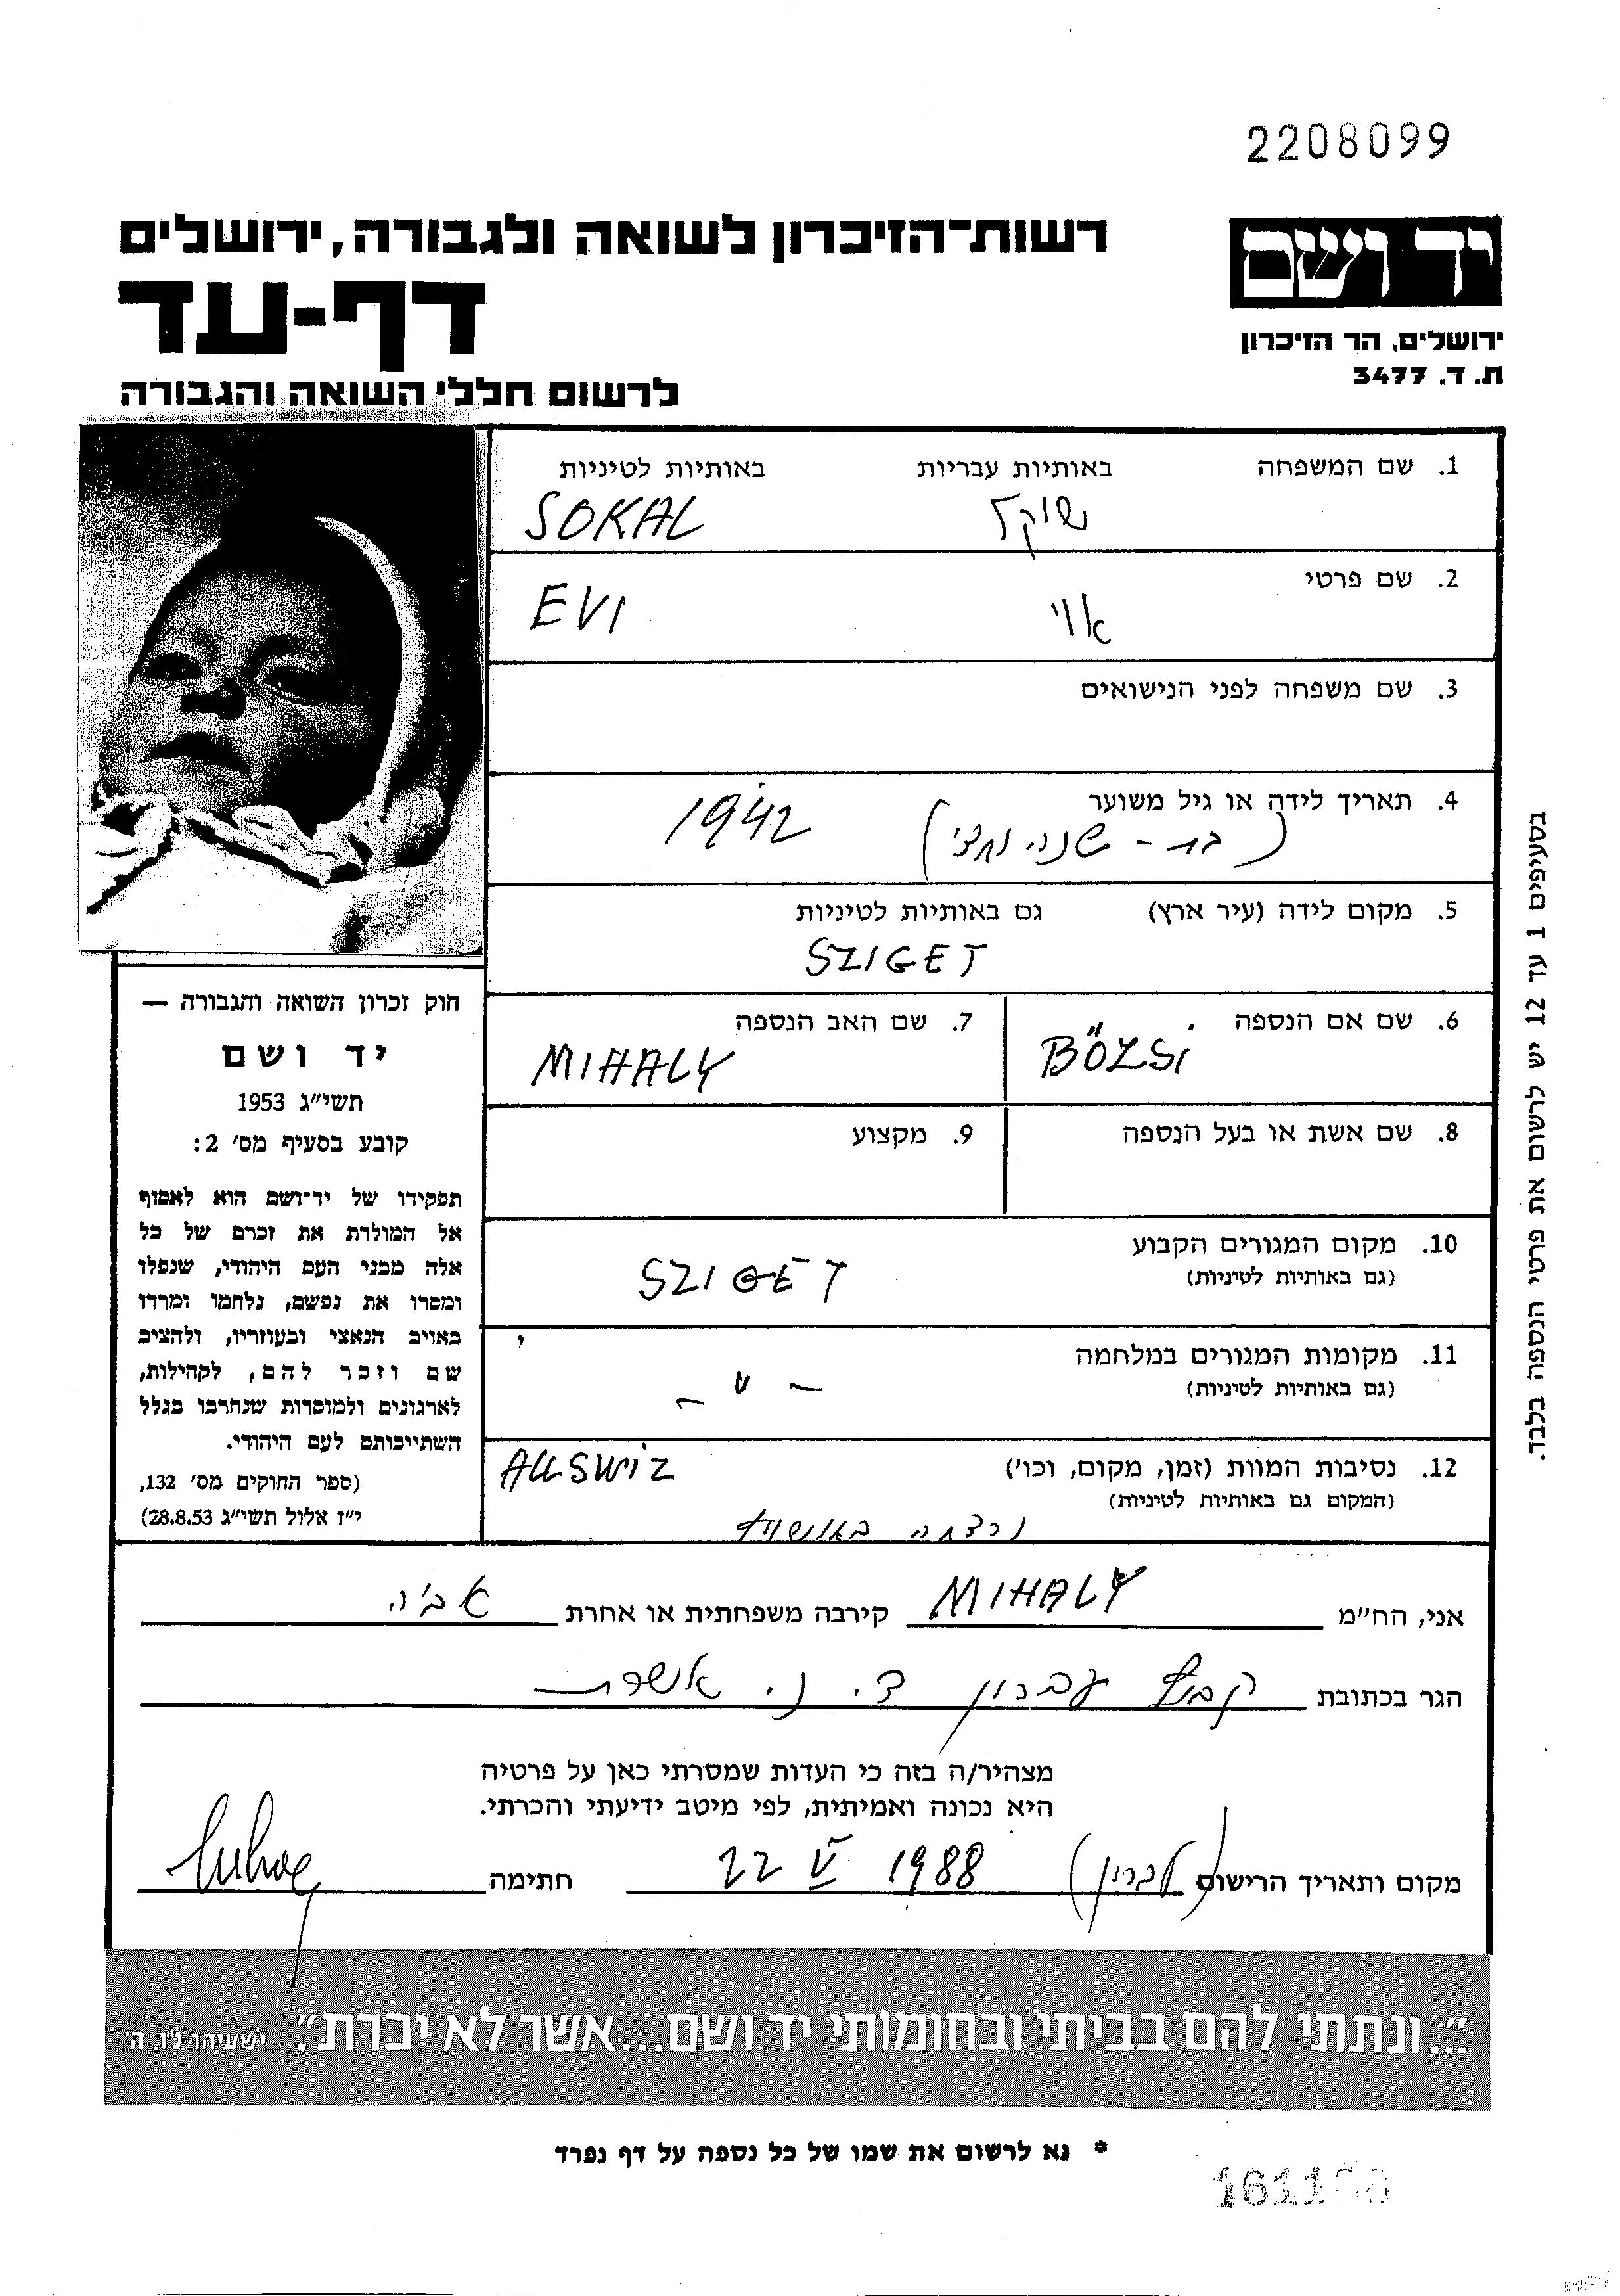 2208099
יד ושם
ירושלים, הר הזיכרון
ת. ד. 3477
רשות־הזיכרון לשואה ולגבורה, ירושלים
דף-עד
לרשום חללי השואה והגבורה
1. שם המשפחה באותיות עבריות באותיות לטיניות
שוקל SOKAL
2. שם פרטי
אוי EVI
3. שם משפחה לפני הנישואים
4. תאריך לידה או גיל משוער
(בת - שנה וחצי) 1942
5. מקום לידה (עיר ארץ) גם באותיות לטיניות
SZIGET
6. שם אם הנספה 7. שם האב הנספה
BŐZSI MIHALY
8. שם אשת או בעל הנספה 9. מקצוע
10. מקום המגורים הקבוע
(גם באותיות לטיניות)
SZIGET
11. מקומות המגורים במלחמה
(גם באותיות לטיניות)
– " –
12. נסיבות המוות (זמן, מקום, וכו') AUSWIZ
(המקום גם באותיות לטיניות)
נרצחה באושויץ
בסעיפים 1 עד 12 יש לרשום את פרטי הנספה בלבד.
חוק זכרון השואה והגבורה —
יד ושם
תשי״ג 1953
קובע בסעיף מס׳ 2:
תפקידו של יד־ושם הוא לאסוף
אל המולדת את זכרם של כל
אלה מבני העם היהודי, שנפלו
ומסרו את נפשם, נלחמו ומרדו
באויב הנאצי ובעוזריו, ולהציב
שם וזכר להם, לקהילות,
לארגונים ולמוסדות שנחרבו בגלל
השתייכותם לעם היהודי.
(ספר החוקים מס׳ 132,
י״ז אלול תשי״ג 28.8.53)
אני, הח״מ MIHALY קירבה משפחתית או אחרת אביה
הגר בכתובת קבוץ עברון ד. נ. אשרת
מצהיר/ה בזה כי העדות שמסרתי כאן על פרטיה
היא נכונה ואמיתית, לפי מיטב ידיעתי והכרתי.
מקום ותאריך הרישום (עברון) 22 V 1988 חתימה
"...ונתתי להם בביתי ובחומותי יד ושם...אשר לא יכרת". ישעיהו נ״ו, ה׳
* נא לרשום את שמו של כל נספה על דף נפרד